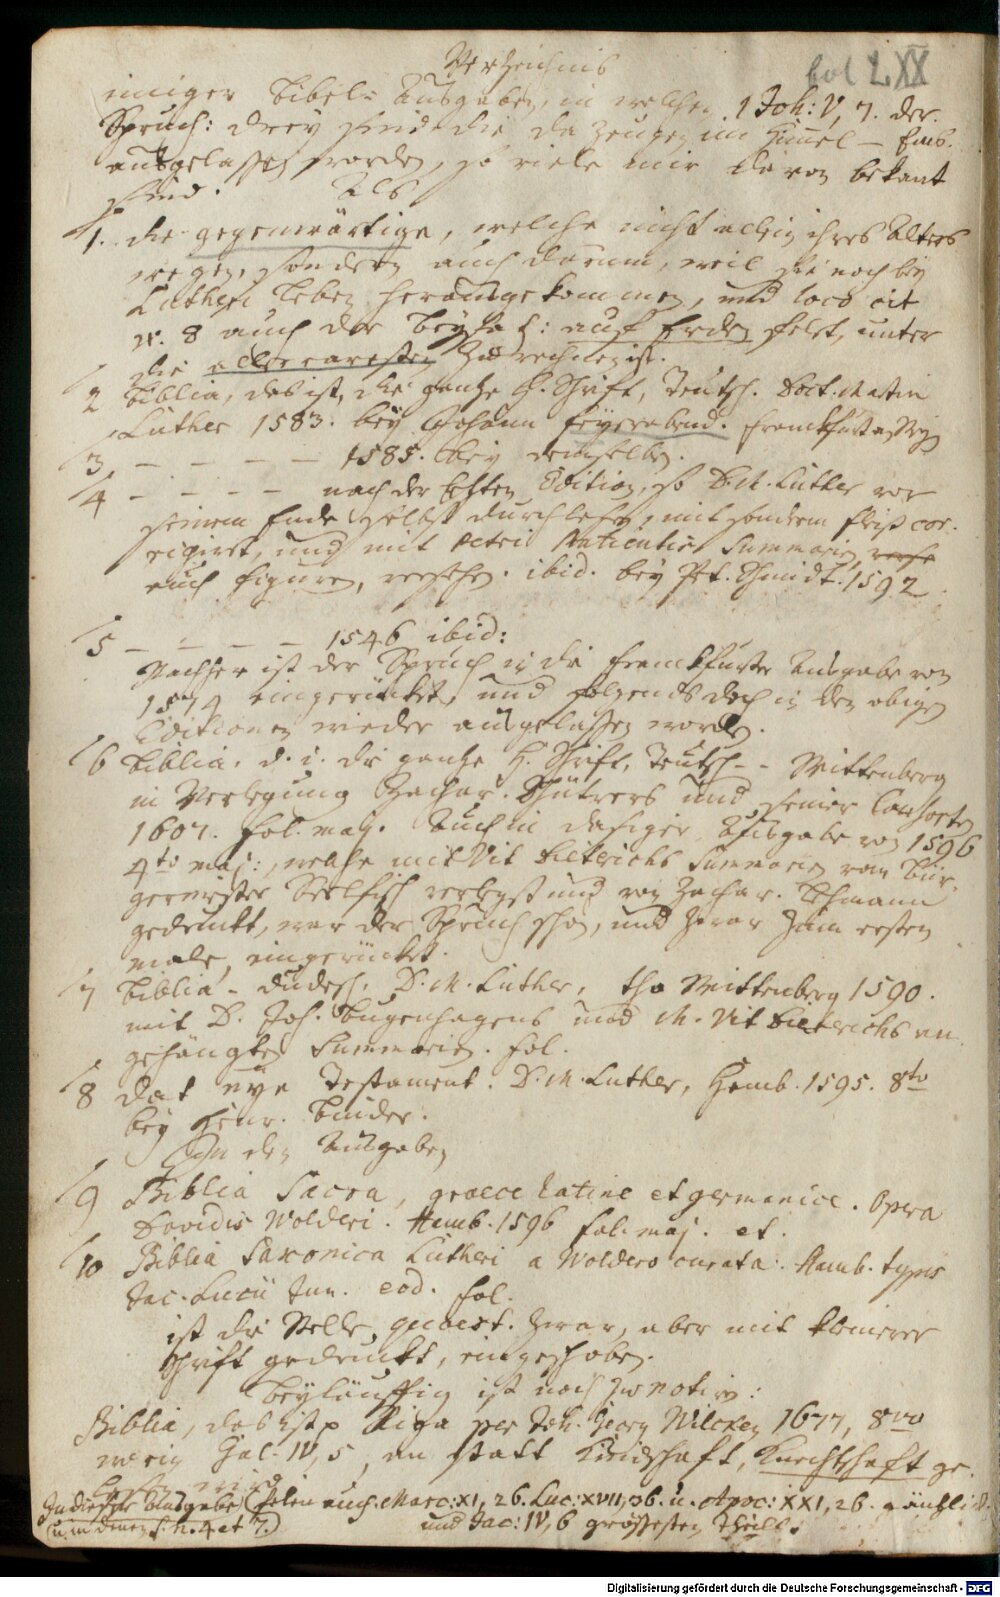 Verzeichnis
fol LXX
einiger Bibel-Ausgaben, in welchen 1 Joh: V, 7. der
Spruch: drey sind die da zeugen im Himel —
ausgelassen worden, so viele mir davon bekant
sind. Als
1. die gegenwärtige, welche nicht allein ihres Alters
wegen, sondern auch darum, weil sie noch bey
Lutheri Leben herausgekommen, und loco cit
v. 8 auch der Beysatz: auf Erden felet, unter
die allerraresten zu rechnen ist.
2 Biblia, das ist, die gantze H. Schrift, Teutsch. Doct. Martin
Luther 1583. bey Johann Feyerabend. Franckfurt
3, — — — — — 1585. bey demselben.
4 - - - - nach der letzten Edition, so D. M. Luther vor
seinem Ende selbst durchlesen, mit sonderm fleiß cor-
rigiret, und mit Petri Patientis Summarien,
auch figuren, versehen. ibid. bey Pet. Schmidt. 1592
5 — — — — 1546 ibid:
Nachher ist der Spruch in die franckfurter Ausgabe von
1574 eingerücket, und folgends doch in den obigen
Editionen wieder ausgelassen worden.
6 Biblia. d. i. die gantze H. Schrift, Teutsch - - Wittenberg
in Verlegung Zachar. Schürers und seiner Consorten
1607. fol. maj. Auch in dasiger Ausgabe von 1596
4to maj:, welche mit Vit Dietrichs Summarien vom Bür-
germeister Seelfisch verlegt und von Zachar. Lehmann
gedruckt, war der Spruch schon, und zwar zum ersten
male, eingerücket.
7 Biblia - Düdesch. D. M. Luther, tho Wittenberg 1590.
mit D. Joh. Bugenhagens und M. Vit Dietrichs an-
gehängten Summarien. fol.
8 Dat nye Testament. D. M. Luther, Hamb. 1595. 8to
bey Henr. Binder.
In den Ausgaben
9 Biblia Sacra, graece latine et germanice. Opera
Davidis Wolderi. Hamb. 1596 fol. maj. et.
10 Biblia Saxonica Lutheri a Woldero curata. Hamb. typis
Jac. Lucii Jun. eod. fol.
ist die Stelle, quaest. zwar, aber mit kleinerer
Schrift gedruckt, eingeschoben.
Beyläuffig ist noch zu notiren:
Biblia, das ist p Riga per Joh. Georg Wilcken 1677, 8vo
worin Gal. IV, 5, an statt Kindschaft, Knechtschaft ge-
lesen wird
In dieser Ausgabe (u. in denen s. n. 4 et 7.) felen auch: Marc: XI, 26. Luc: XVII, 36. u. Apoc: XXI, 26. gäntzlich.
und Jac: IV, 6 grössesten Theils.
Digitalisierung gefördert durch die Deutsche Forschungsgemeinschaft - DFG